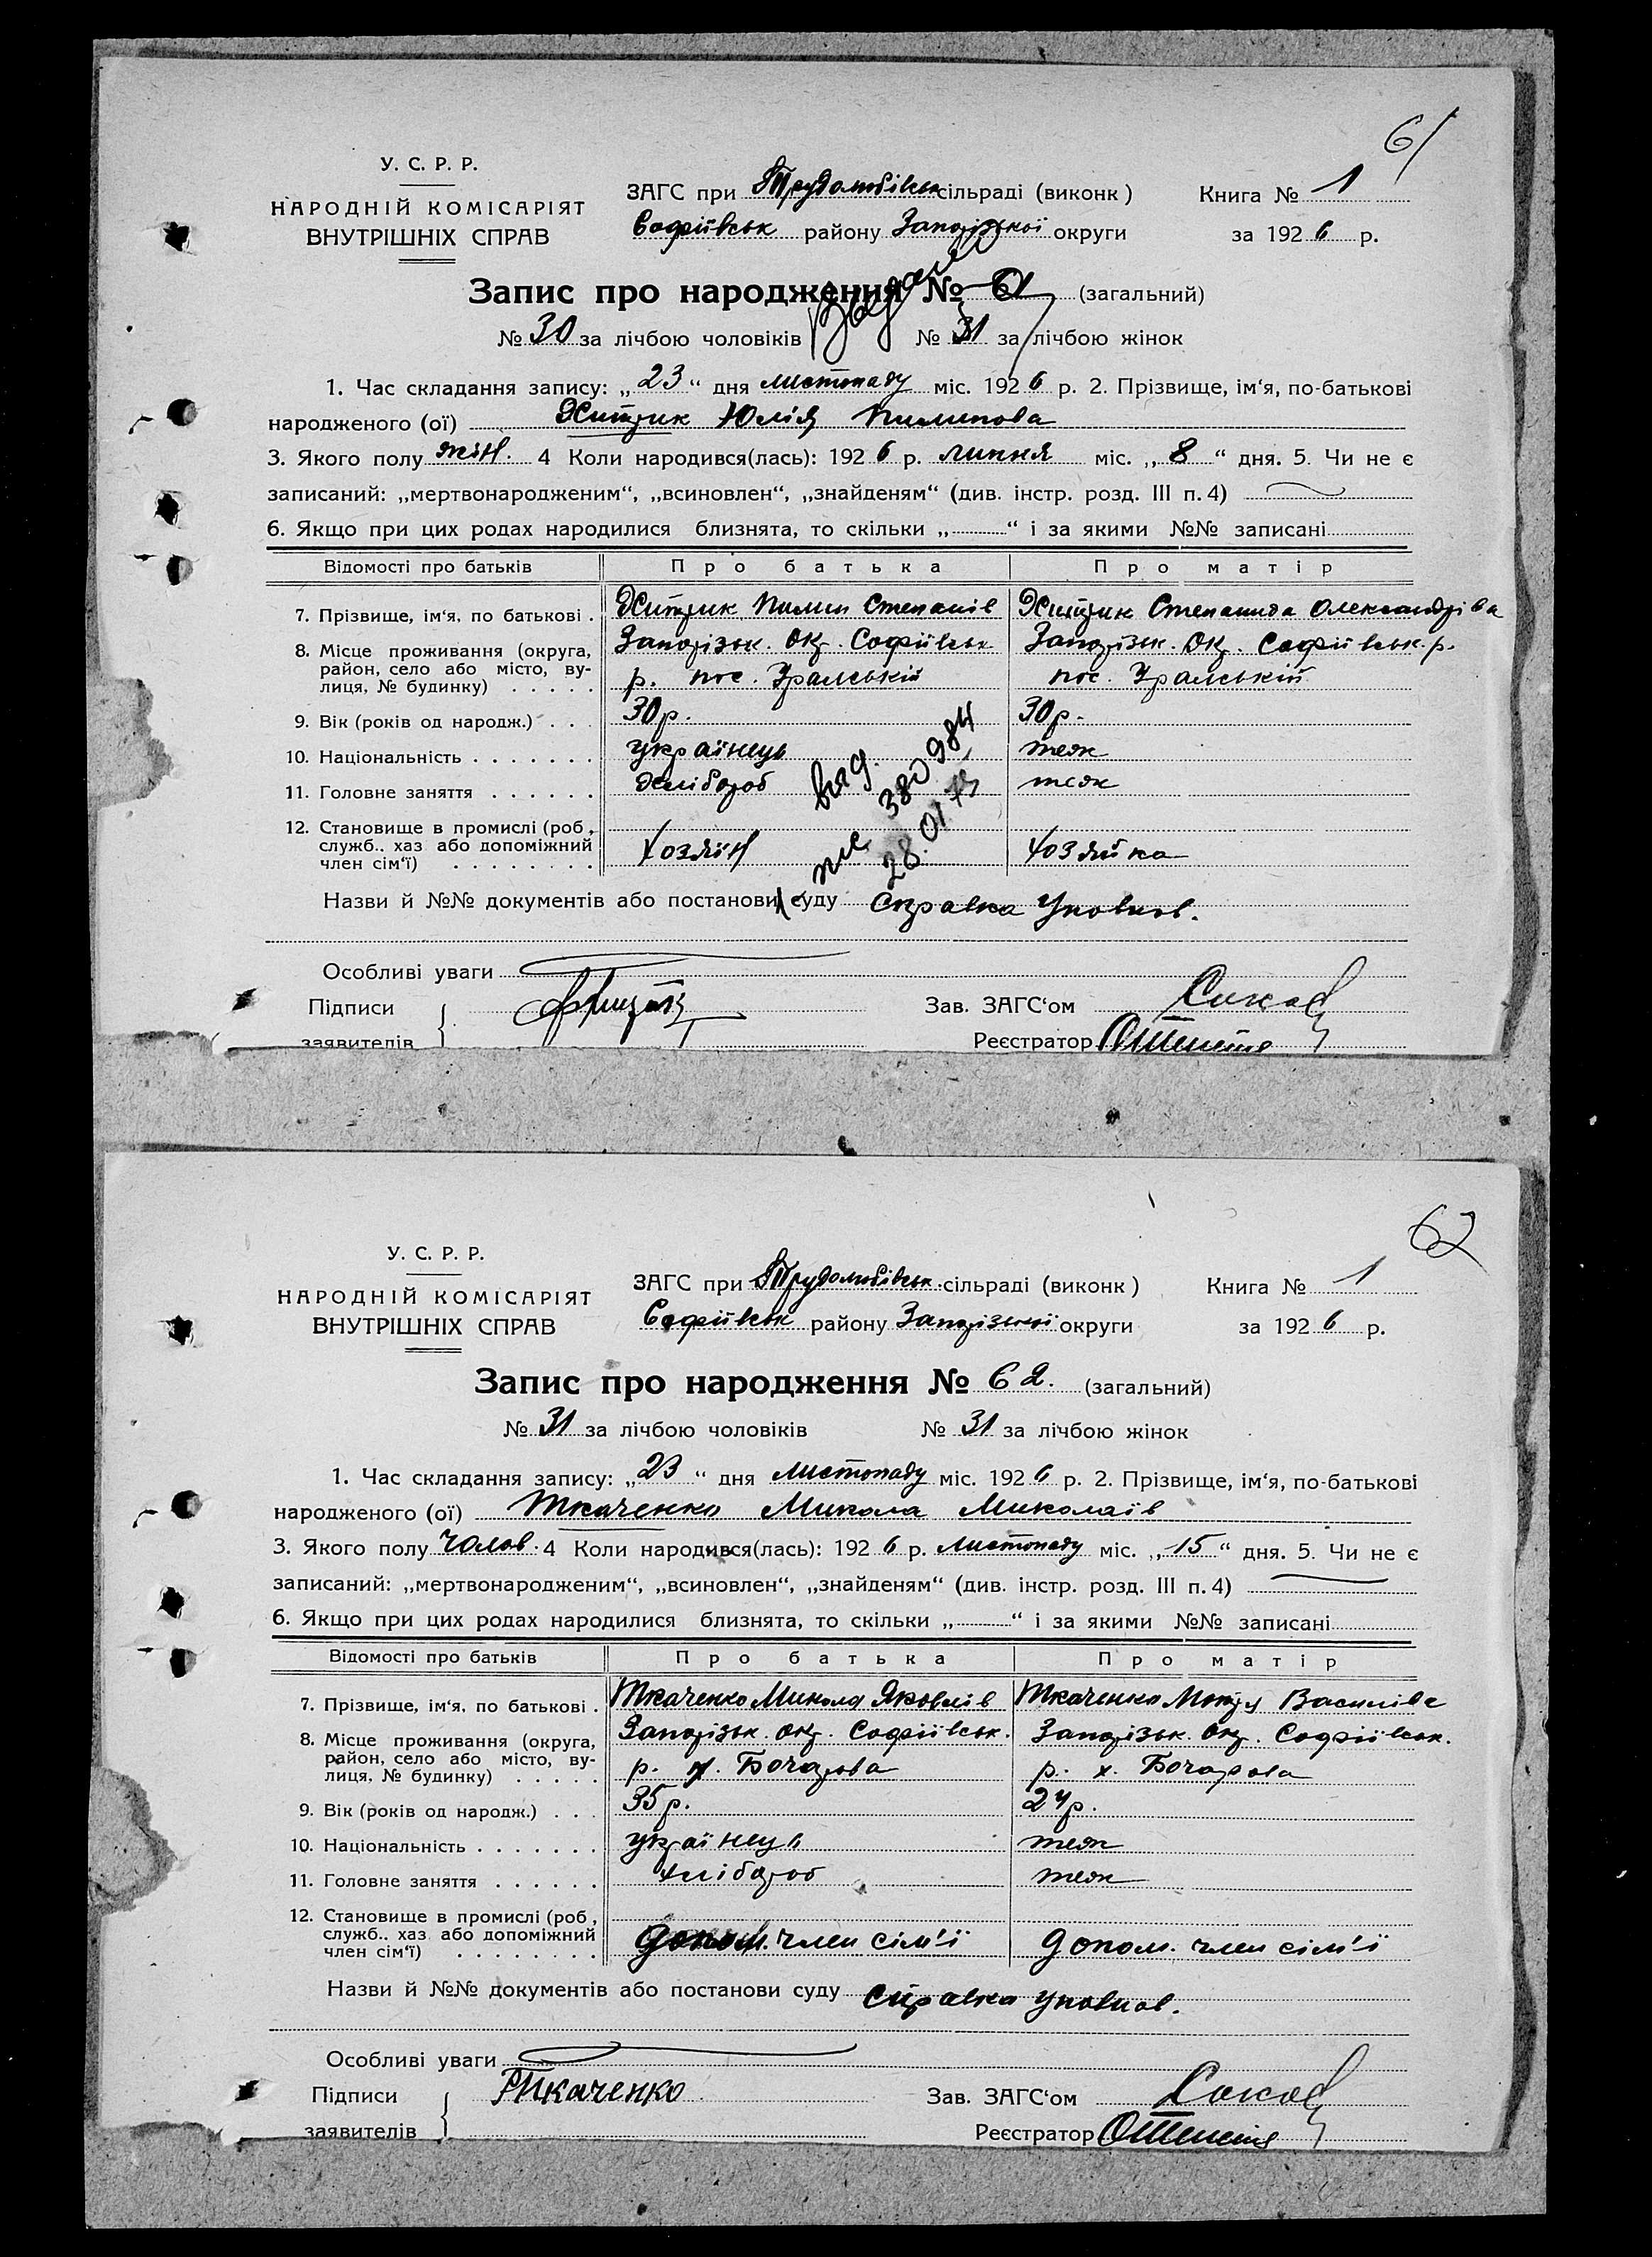 61
У. С. Р. Р.
НАРОДНІЙ КОМІСАРІЯТ
ВНУТРІШНІХ СПРАВ
ЗАГС при Трудолюбівськ сільраді (виконк)
Софіївськ району Запорізької округи
Книга № 1
за 1926 р.
Запис про народження № 61 (загальний)
№ 30 за лічбою чоловіків № 31 за лічбою жінок
1. Час складання запису: „23“ дня листопаду міс. 1926 р. 2. Прізвище, ім‘я, по-батькові
народженого (ої) Хитрик Юлія Пилипова
3. Якого полу жін. 4 Коли народився(лась): 1926 р. липня міс. „8“ дня. 5. Чи не є
записаний: „мертвонародженим“, „всиновлен“, „знайденям“ (див. інстр. розд. III п. 4)
6. Якщо при цих родах народилися близнята, то скільки „ “ і за якими №№ записані
Відомості про батьків Про батька Про матір
7. Прізвище, ім‘я, по батькові . Хитрик Пилип Степанів Хитрик Степанида Олександрівна
8. Місце проживання (округа, район, село або місто, вулиця, № будинку) . . . . .
Запорізьк. окр. Софіївськ Запорізьк. окр. Софіївськ. р.
р. пос. Уральскій пос. Уральскій
9. Вік (років од народж.) . . . 30 р. 30 р.
10. Національність . . . . . . . українець теж
11. Головне заняття . . . . . . хлібороб теж
12. Становище в промислі (роб., служб.. хаз або допоміжний член сім‘ї) . . . . . . . .
хозяін хозяйка
вид.
380984
28.01.73
Назви й №№ документів або постанови суду Справка Уповнов.
Особливі уваги
Підписи
заявителів
Зав. ЗАГС‘ом
Реєстратор
62
У. С. Р. Р.
НАРОДНІЙ КОМІСАРІЯТ
ВНУТРІШНІХ СПРАВ
ЗАГС при Трудолюбівськ. сільраді (виконк)
Софіївськ району Запорізької округи
Книга № 1
за 1926 р.
Запис про народження № 62. (загальний)
№ 31 за лічбою чоловіків № 31 за лічбою жінок
1. Час складання запису: „23“ дня листопаду міс. 1926 р. 2. Прізвище, ім‘я, по-батькові
народженого (ої) Ткаченко Микола Миколаїв
3. Якого полу чолов. 4 Коли народився(лась): 1926 р. листопаду міс. „15“ дня. 5. Чи не є
записаний: „мертвонародженим“, „всиновлен“, „знайденям“ (див. інстр. розд. III п. 4)
6. Якщо при цих родах народилися близнята, то скільки „ “ і за якими №№ записані
Відомості про батьків Про батька Про матір
7. Прізвище, ім‘я, по батькові . Ткаченко Микола Яковлів Ткаченко Мотря Василівс
8. Місце проживання (округа, район, село або місто, вулиця, № будинку) . . . . .
Запорізьк. окр. Софіївськ. Запорізьк. окр. Софіївськ.
р. х. Бочарова р. х. Бочарова
9. Вік (років од народж.) . . . 35 р. 24 р.
10. Національність . . . . . . . українець теж
11. Головне заняття . . . . . . хлібороб теж
12. Становище в промислі (роб., служб.. хаз або допоміжний член сім‘ї) . . . . . . . .
допом. член сім'ї допом. член сім'ї
Назви й №№ документів або постанови суду Справка Уповнов.
Особливі уваги
Підписи
заявителів
Ткаченко
Зав. ЗАГС‘ом
Реєстратор